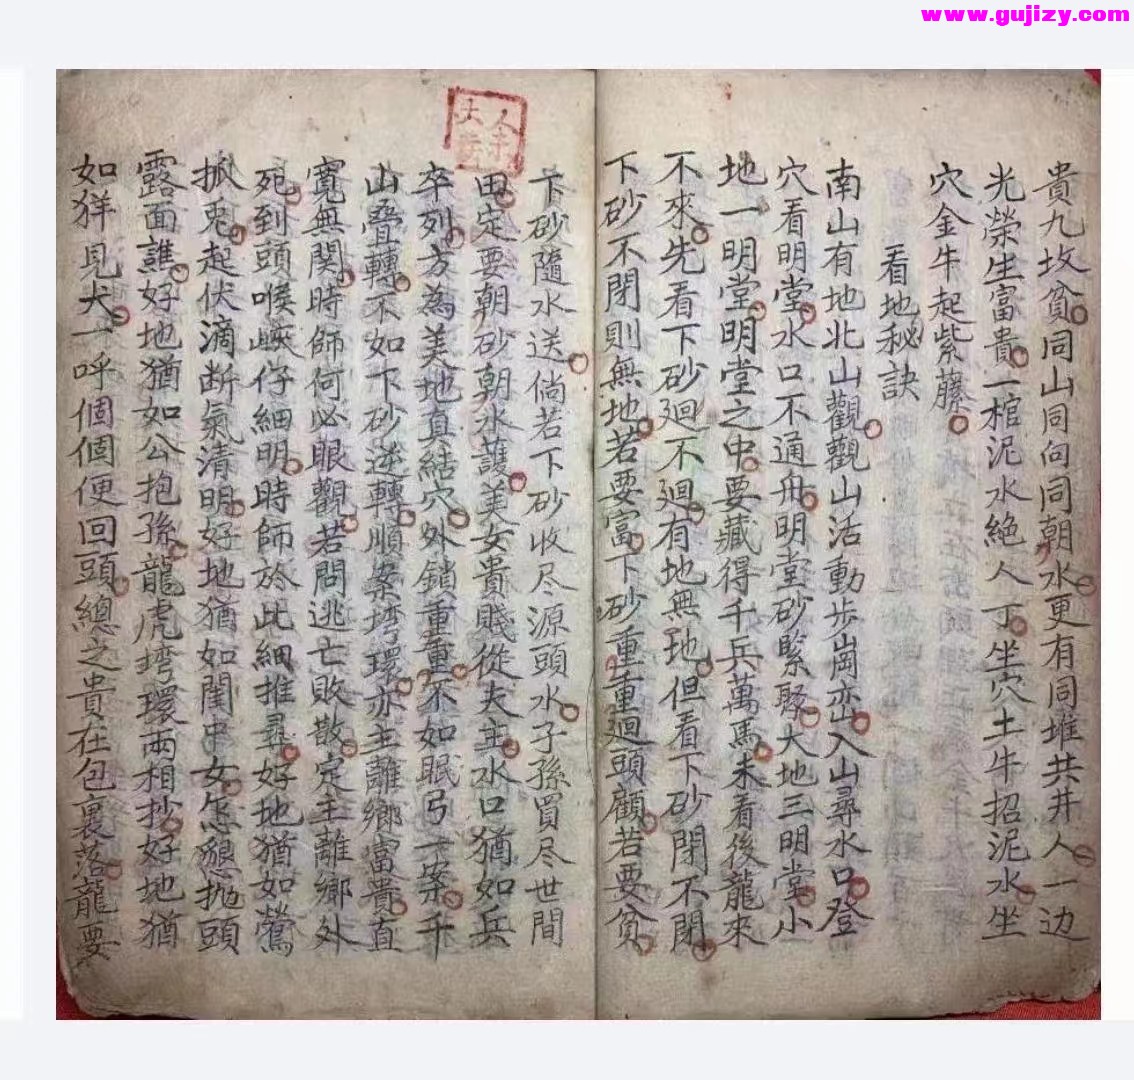 www.gujizy.com
貴九坟貧同山同向同朝水更有同堆共井人一边
光榮生富貴一棺泥水絶人丁坐穴土牛招泥水坐
穴金牛起紫藤
看地秘訣
南山有地北山觀觀山活動步崗巒入山尋水口登
穴看明堂水口不通舟明堂砂緊聚大地三明堂小
地一明堂明堂之中要藏得千兵萬馬未看後龍來
不來先看下砂廻不廻有地無地但看下砂閉不閉
下砂不閉則無地若要富下砂重重廻頭顧若要貧
下砂隨水送倘若下砂收尽源頭水子孫買尽世間
田定要朝砂朝水護美女貴賤從夫主水口猶如兵
卒列方為美地真結穴外鎖重重不如眠弓一案千
山叠轉不如下砂逆轉順案塆環亦主離鄉富貴直
寬無関時師何必眼觀若問逃亡敗散定主離鄉外
死到頭喉峽仔細明時師於此細推尋好地猶如鶯
掀兎起伏滴断氣清明好地猶如閨中女怎懇抛頭
露面誰好地猶如公抱孫龍虎塆環兩相抄好地猶
如𢓜見犬一呼個個便回頭總之貴在包裏落龍要